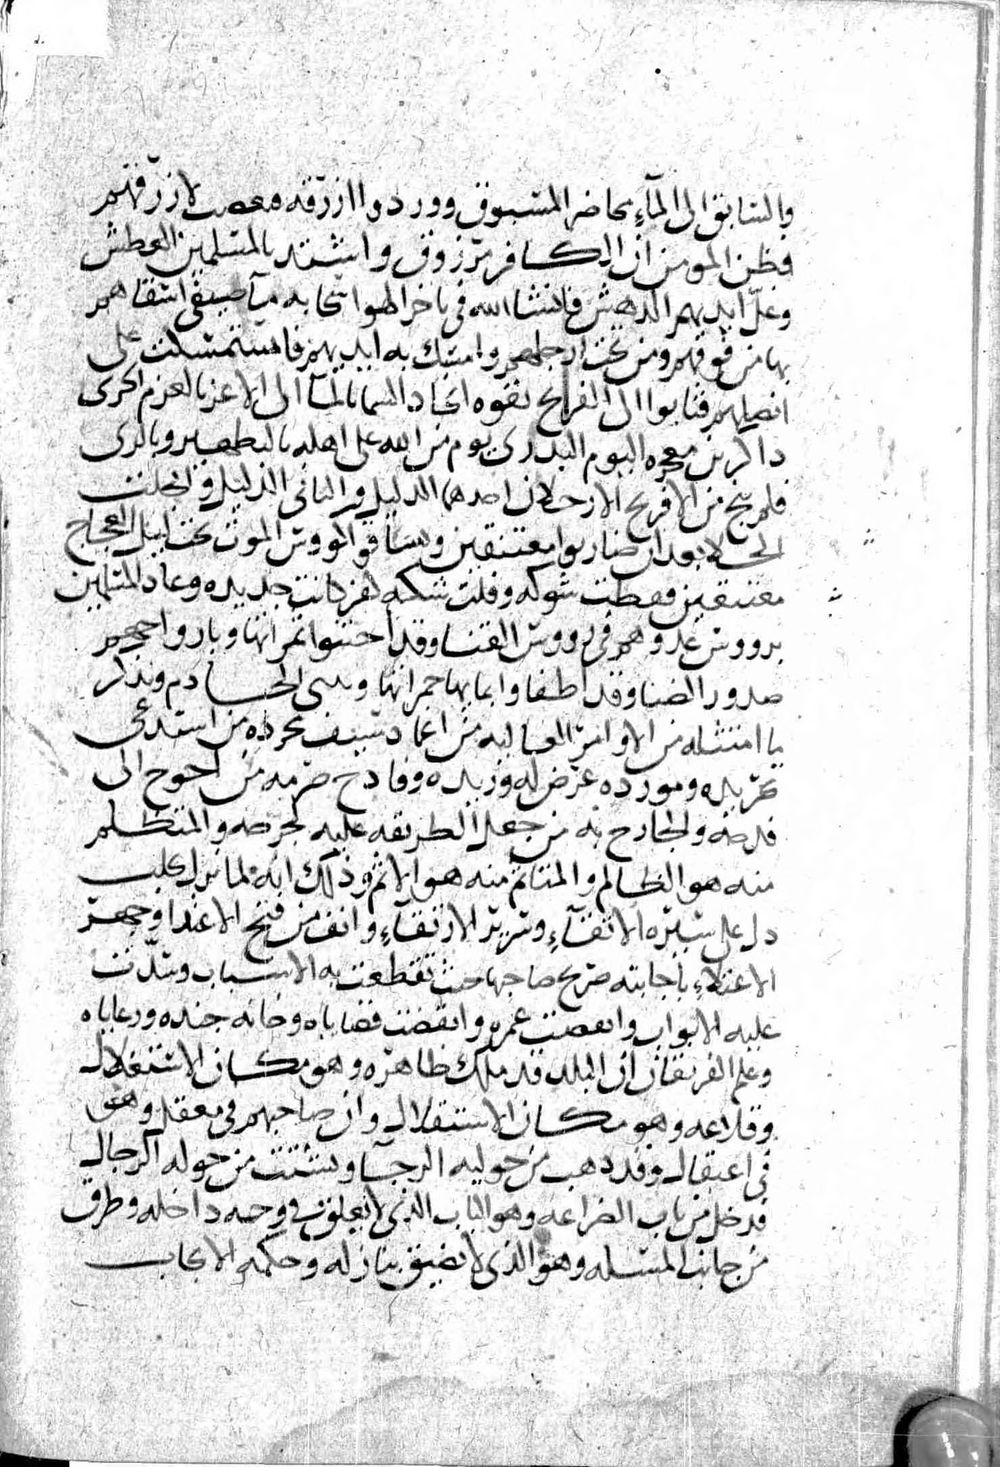 والسابق الى المآء يحاصر المسبوق ووردوا ازرقه فغصت لازرقهم
فظن المومن ان الكافر مرزوق واشتد بالمسلمين العطش
وعلا ايديهم الدهش فانشا الله في ناجر الهوا سحابه مآ صيفى اسقاهم
بها من فوقهم ومن تحت ارجلهم وامسك به ايديهم فاستمسكت على
انصلهم فثابوا الى الفرنج بقوه انجاد السما بالمآ الى الاعز بالعزم اكرى
ذاكرين معجزه اليوم البدرى يوم من الله على اهله بالتطهير وبالرى
فلم ينج من الافرنج الا رجلان احدهما الدليل والثاني الذليل وانجلت
الا بعد ان ضاربوا معتنقين وتساقوا كووس الموت تحت ليل العجاج
مغتبقين فقطت شوكه وفلت شكه لكفر كانت جديده وعاد المسلمين
برووس عدوهم في رووس القنا وقد اجتنوا ثمراتها وبارواحهم
صدور الضبا وقد اطفاوا بمايها جمراتها الحسا دم وتذكر
ما امتثله من الاوامر العاليه من اغماد سيف تجرده من استدعى
تجريده ومورده عرض له وريده وفادح ضرمه من احوج الى
قدحه والجارح به من جعل الطريقه عليه لجرحه والمتظلم
منه هو الظالم والمتاثم منه هو الاثم وذلك انه لما نزل حلب
دل على ستره الاتقآء وسريره الارتقآء وانف من فتح الاغتدا وجهر
الاعتلاء باجابته صريح صاحبها حيث تقطعت به الاسباب وسدت
عليه الابواب وانفصت عمره وانقضت قضاياه وخانه جنده ورعاياه
وعلم الفريقان ان البلد قد ملك ظاهره وهو مكان الاستغلال
وقلاعه وهو مكان الاستقلال وان صاحبهم في معقل وهو
في اعتقال وقد ذهب من حوليه الرجآ وتشتت من حوله الرجال
فدخل من باب الضراعه وهو الباب الذي لا يغلق في وجه داخله وطرق
من جانب المسله وهو الذي لا يضيق بنازله وحكمه الايجاب